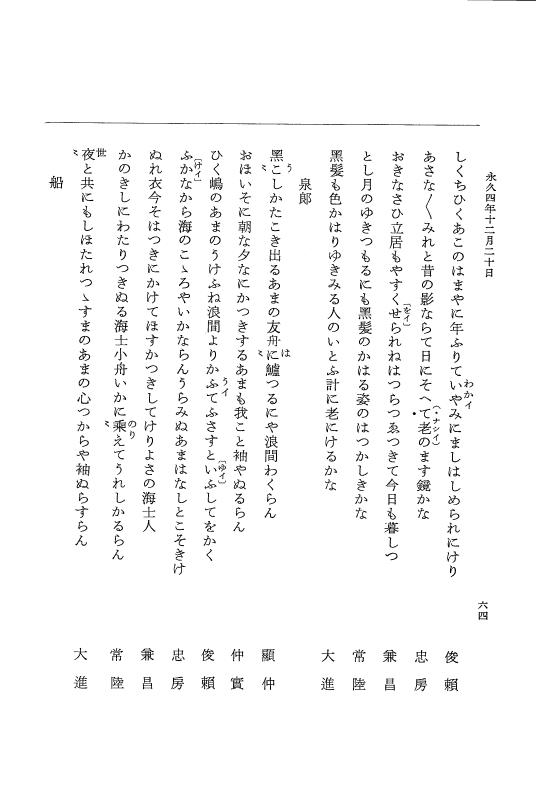 永久四年十二月二十日
六四
しくちひくあこのはまやに年ふりていやみにましはしめられにけり 俊頼
わかイ
あさな〳〵みれと昔の影ならて日にそへて老のます鏡かな 忠房
(・ナシイ)
おきなさひ立居もやすくせられねはつらつゑつきて今日も暮しつ 兼昌
〔をイ〕
とし月のゆきつもるにも黒髪のかはる姿のはつかしきかな 常陸
黒髪も色かはりゆきみる人のいとふ計に老にけるかな 大進
泉郎
黒こしかたこき出るあまの友舟に鱸つるにや浪間わくらん 顯仲
う は
おほいそに朝な夕なにかつきするあまも我こと袖やぬるらん 仲實
ひく嶋のあまのうけふね浪間よりかふてふさすといふしてをかく 俊頼
うイ 〔ゆイ〕
ふかなから海のこゝろやいかならんうらみぬあまはなしとこそきけ 忠房
〔けイ〕
ぬれ衣今そはつきにかけてほすかつきしてけりよさの海士人 兼昌
かのきしにわたりつきぬる海士小舟いかに乘えてうれしかるらん 常陸
のり
夜と共にもしほたれつゝすまのあまの心つからや袖ぬらすらん 大進
世
船